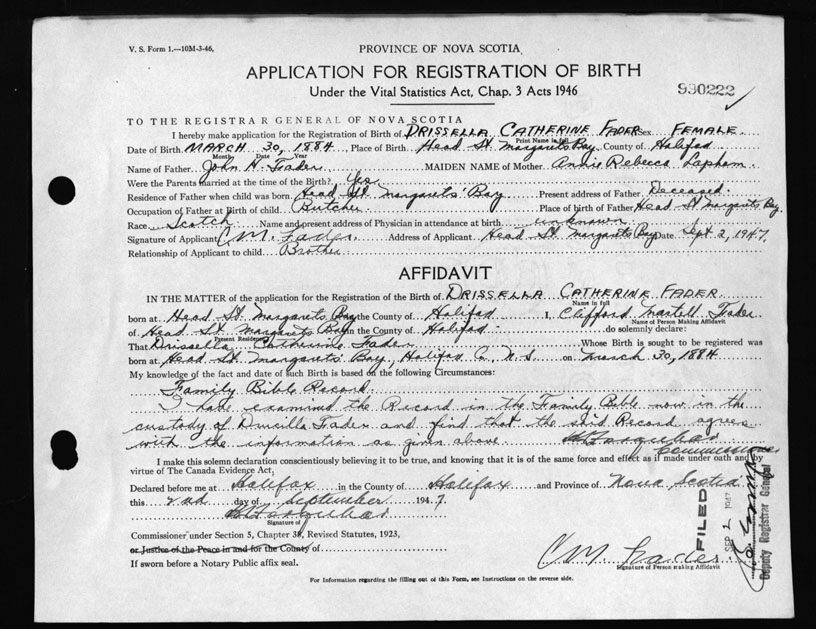 V. S. Form 1.—10M-3-46,
PROVINCE OF NOVA SCOTIA
APPLICATION FOR REGISTRATION OF BIRTH
Under the Vital Statistics Act, Chap. 3 Acts 1946
930222
TO THE REGISTRAR GENERAL OF NOVA SCOTIA
I hereby make application for the Registration of Birth of DRISSELLA CATHERINE FADER Sex FEMALE
Print Name in full
Date of Birth MARCH 30, 1884 Place of Birth Head St. Margarets Bay County of Halifax
Month Date Year
Name of Father John H. Fader MAIDEN NAME of Mother Annie Rebecca Lapham
Were the Parents married at the time of the Birth? Yes
Residence of Father when child was born. Head St Margarets Bay Present address of Father Deceased
Occupation of Father at Birth of child Butcher Place of birth of Father Head St Margarets Bay
Race Scotch Name and present address of Physician in attendance at birth unknown
Signature of Applicant C M. Fader. Address of Applicant Head St Margarets Bay Date Sept 2, 1947
Relationship of Applicant to child Brother
AFFIDAVIT
IN THE MATTER of the application for the Registration of the Birth of DRISSELLA CATHERINE FADER
Name in full
born at Head St. Margarets Bay in the County of Halifax I, Clifford Martell Fader
Name of Person Making Affidavit
of Head St. Margarets Bay in the County of Halifax do solemnly declare:
Present Residence
That Drissella Catherine Fader Whose Birth is sought to be registered was
born at Head St. Margarets Bay, Halifax Co. N. S. on March 30, 1884
My knowledge of the fact and date of such Birth is based on the following Circumstances:
Family Bible Record
I have examined the Record in the Family Bible now in the
custody of Drucilla Fader and find that the said Record agrees
with the information as given above
Commissioner
I make this solemn declaration conscientiously believing it to be true, and knowing that it is of the same force and effect as if made under oath and by
virtue of The Canada Evidence Act.
Declared before me at Halifax in the County of Halifax and Province of Nova Scotia
this 2nd day of September 1947
Signature of
Commissioner under Section 5, Chapter 38, Revised Statutes, 1923,
or Justice of the Peace in and for the County of
If sworn before a Notary Public affix seal.
C M. Fader
Signature of Person Making Affidavit
FILED
SEP 2 1947
Deputy Registrar General
For Information regarding the filling out of this Form, see Instructions on the reverse side.